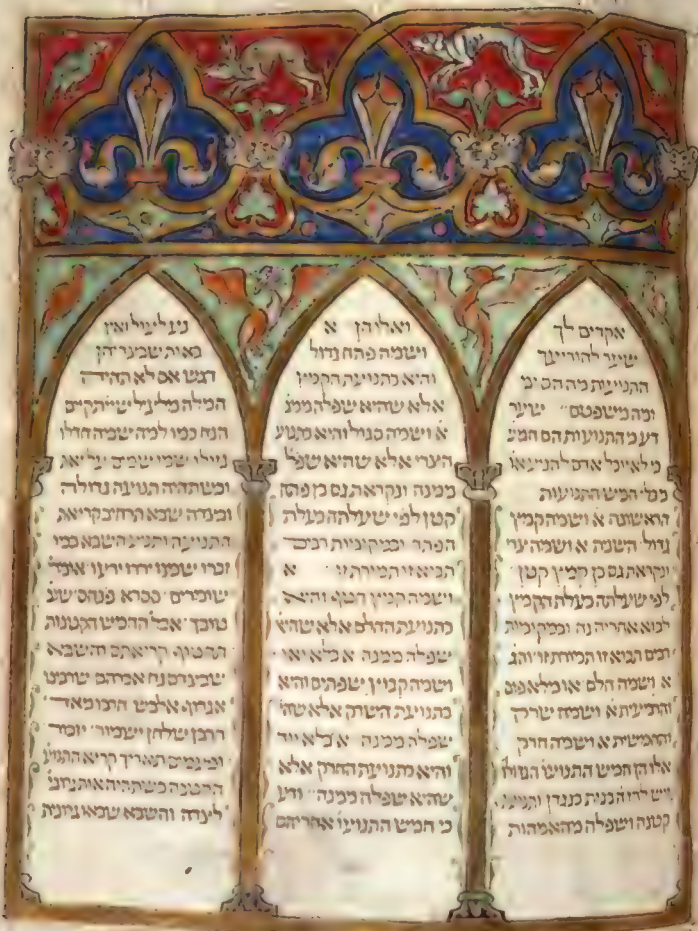 אקדים לך
שיער להודיעך
התנועות מה הם
ומה משפטם שער
דע כי התנועות הם חמש
לא יוכל אדם להניע או
מבלי חמש התנועות
הראשונה א ושמה קמץ
גדול השנית א ושמה צרי
ונקראת גם כן קמץ קטן
לפי שעלתה כעלת הקמץ
לבוא אחריה נה ובמקומות
רבים תבוא זו תמורת זו והג
א ושמה חלם או מלאפום
והרביעית א ושמה שרק
והחמשית א ושמה חרק
אלו הן חמש התנועו הגדולו
ויש לדוה בנית כנגדן ותנועה
קטנה ושפלה מהאמהות
ואלו הן א
ושמה פתח גדול
והיא כתנועת הקמץ
אלא שהיא שפלה ממנ
א ושמה סגול והיא כתנוע
הצרי אלא שהיא שפל
ממנה ונקראת גם כן פתח
קטן לפי שעלתה כעלת
הפתח ובמקומות רבים
תבוא זו תמורת זו א
ושמה קמץ חטף והיא
כתנועת החלם אלא שהיא
שפלה ממנה א בלא ואו
ושמה קבוץ שפתים והיא
כתנועת השרק אלא שהי
שפלה ממנה א בלא יוד
והיא כתנועת החרק אלא
שהיא שפלה ממנה ודע
כי חמש התנועו אחריהם
נע ליעול ואין
באות שבעדהן
דגש אם לא תהיה
המלה מלעל שיתקים
הנח כמו למה שמה חדלו
גוזלו שמי שמים על
ובשתהיה התנועה גדולה
ובצדה שבא תרחיב קריאת
התנועה ותניע השבא כמו
זכרו שמנו ירדו ידעו אמרו
שומרים ספרא פנחס שוב
טובך אבל החמש הקטנות
תחטוף קריאתם והשבא
שבצדם נח אברהם
ארוף אלבש חרבו מאד
חרבן שולחן ישמור יזכור
ופעמים תאריך קריא התנוע
הקטנה כשתהיה אות
לצדה והשבא שבא